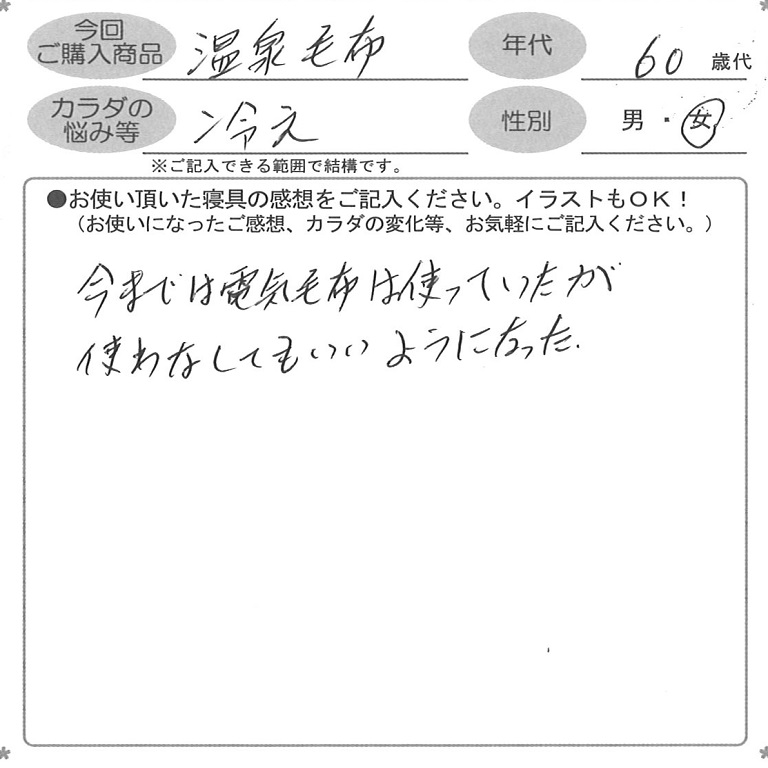 今回
ご購入商品 温泉毛布 年代 60 歳代
カラダの
悩み等 冷え 性別 男・女
※ご記入できる範囲で結構です。
●お使い頂いた寝具の感想をご記入ください。イラストもOK！
（お使いになったご感想、カラダの変化等、お気軽にご記入ください。）
今までは電気毛布は使っていたが
使わなしてもいいようになった.